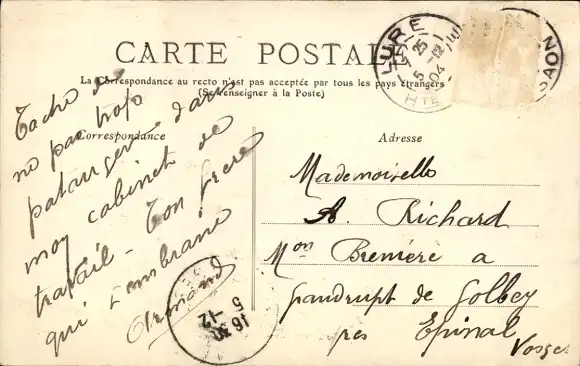 CARTE POSTALE
La Correspondance au recto n'est pas acceptée par tous les pays étrangers
(Se renseigner à la Poste)
Correspondance
Adresse
LURE
25
5 -12
04
HTE
Tache de
ne pas trop
patauger dans
mon cabinet de
travail - Ton frere
qui t'embrasse
Armand
16 30
5 -12
Mademoiselle
A. Richard
Mon Bremière a
Gandrupt de Golbey
pres Epinal
Vosges